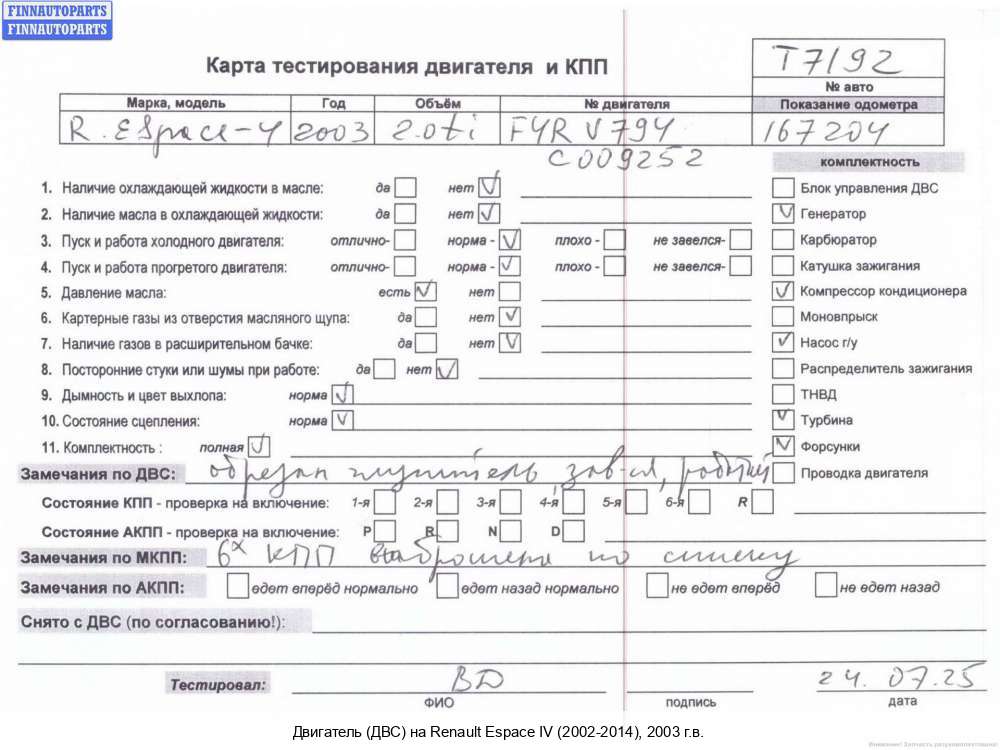 FINNAUTOPARTS
FINNAUTOPARTS
Карта тестирования двигателя и КПП
T7192
№ авто
Марка, модель Год Объём № двигателя Показание одометра
R. ESpace-4 2003 2.0ti F4R V794 167204
C009252
комплектность
1. Наличие охлаждающей жидкости в масле: да нет Блок управления ДВС
2. Наличие масла в охлаждающей жидкости: да нет Генератор
3. Пуск и работа холодного двигателя: отлично- норма - плохо - не завелся- Карбюратор
4. Пуск и работа прогретого двигателя: отлично- норма - плохо - не завелся- Катушка зажигания
5. Давление масла: есть нет Компрессор кондиционера
6. Картерные газы из отверстия масляного щупа: да нет Моновпрыск
7. Наличие газов в расширительном бачке: да нет Насос г/у
8. Посторонние стуки или шумы при работе: да нет Распределитель зажигания
9. Дымность и цвет выхлопа: норма ТНВД
10. Состояние сцепления: норма Турбина
11. Комплектность : полная Форсунки
Замечания по ДВС: обрезан глушитель, зав-ся, рабочий Проводка двигателя
Состояние КПП - проверка на включение: 1-я 2-я 3-я 4-я 5-я 6-я R
Состояние АКПП - проверка на включение: P R N D
Замечания по МКПП: 6х КПП выброшена по списку
Замечания по АКПП: едет вперёд нормально едет назад нормально не едет вперёд не едет назад
Снято с ДВС (по согласованию!):
Тестировал: ВД 24.07.25
ФИО подпись дата
Двигатель (ДВС) на Renault Espace IV (2002-2014), 2003 г.в.